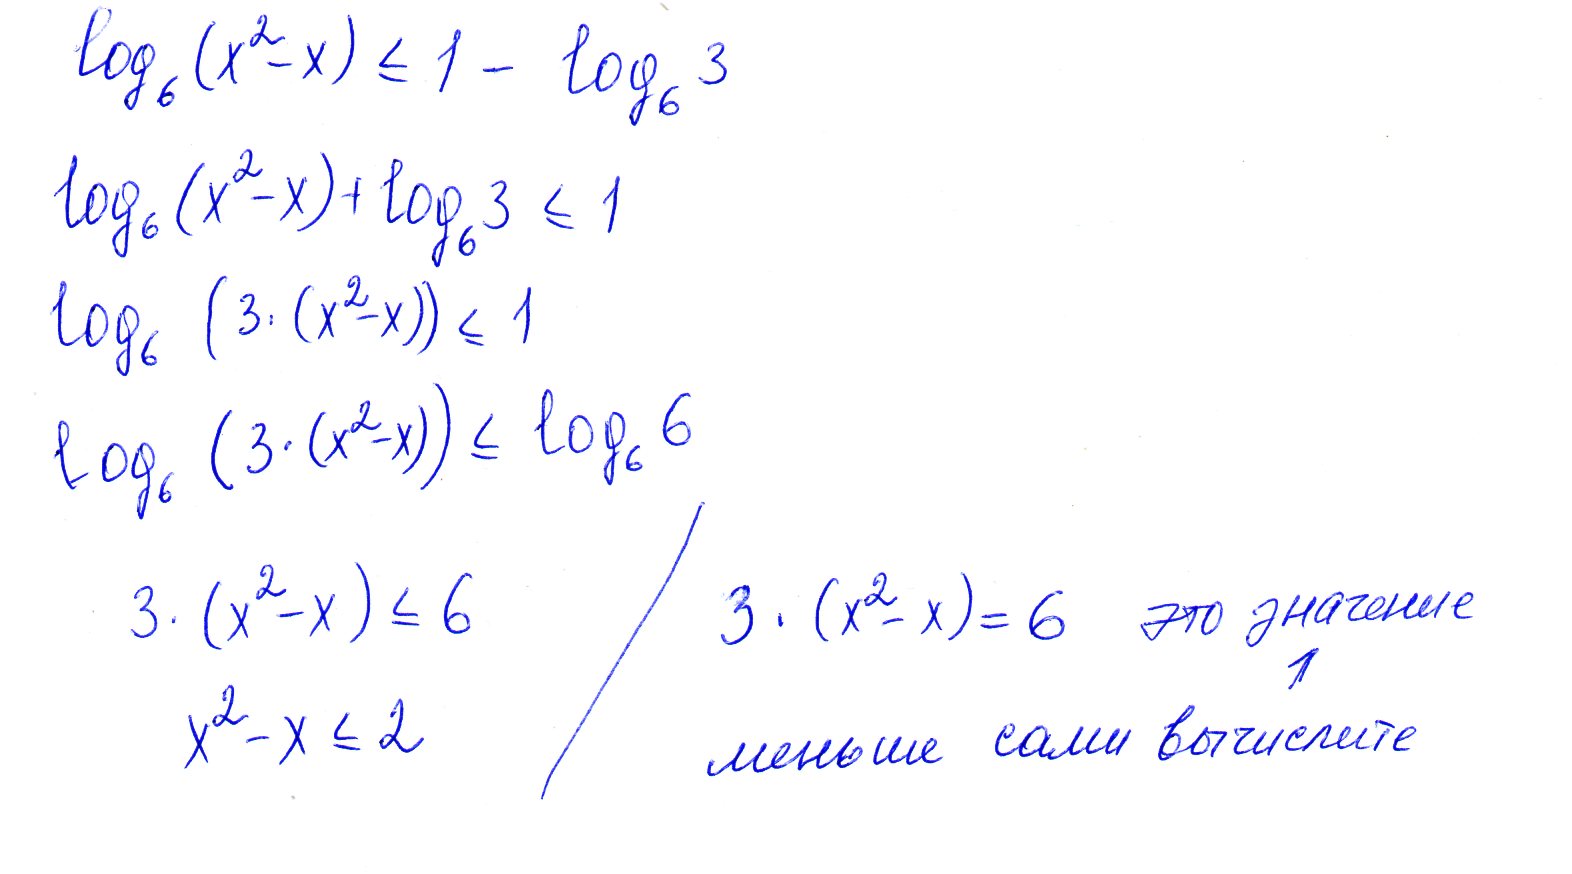 log₆(x²-x) ≤ 1 - log₆3
log₆(x²-x)+log₆3 ≤ 1
log₆(3·(x²-x)) ≤ 1
log₆(3·(x²-x)) ≤ log₆6
3·(x²-x) ≤ 6
x²-x ≤ 2
3·(x²-x)=6 это значение
1
меньше сами вычислите